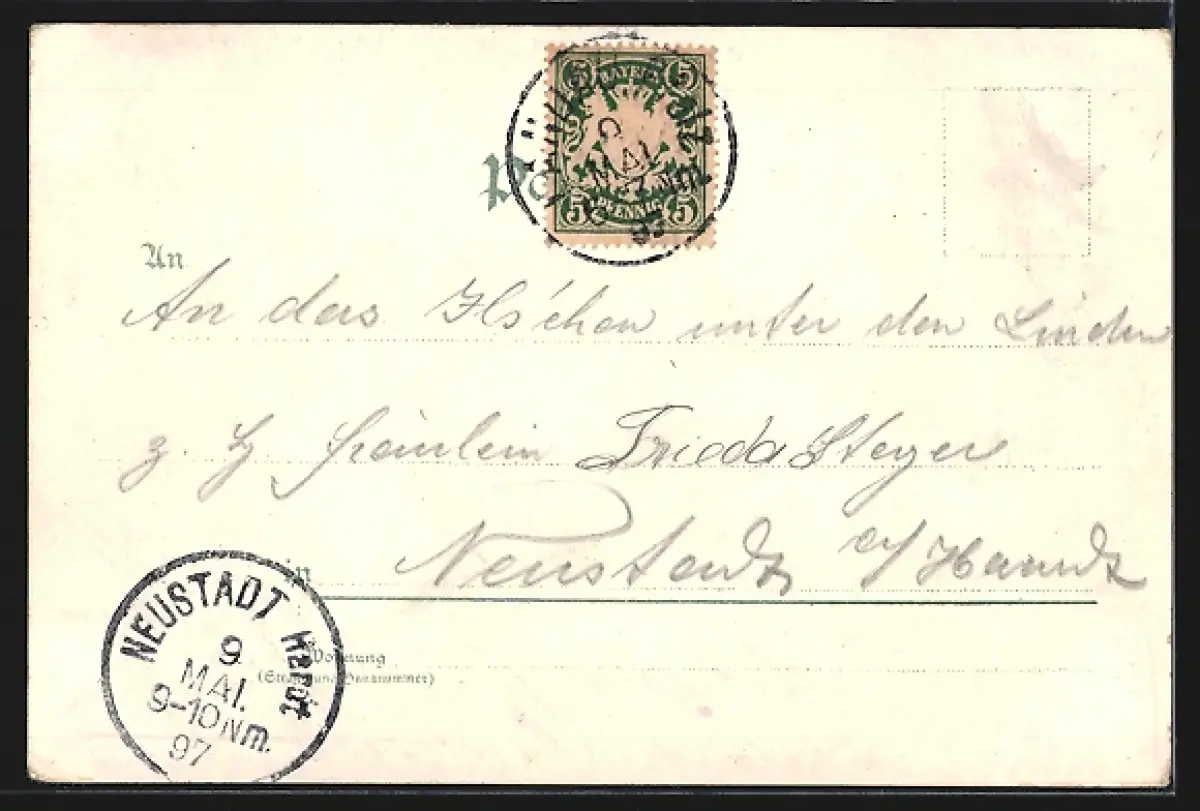 5 BAYERN 5
9
MAI
5 PFENNIG 5
97
An
An das unter den Linden
z. Hd. Fräulein Frieda Steyer
in Neustadt a/Haardt
NEUSTADT Haardt
9
MAI.
9-10 Nm.
97
Wohnung
(Strasse und Hausnummer)